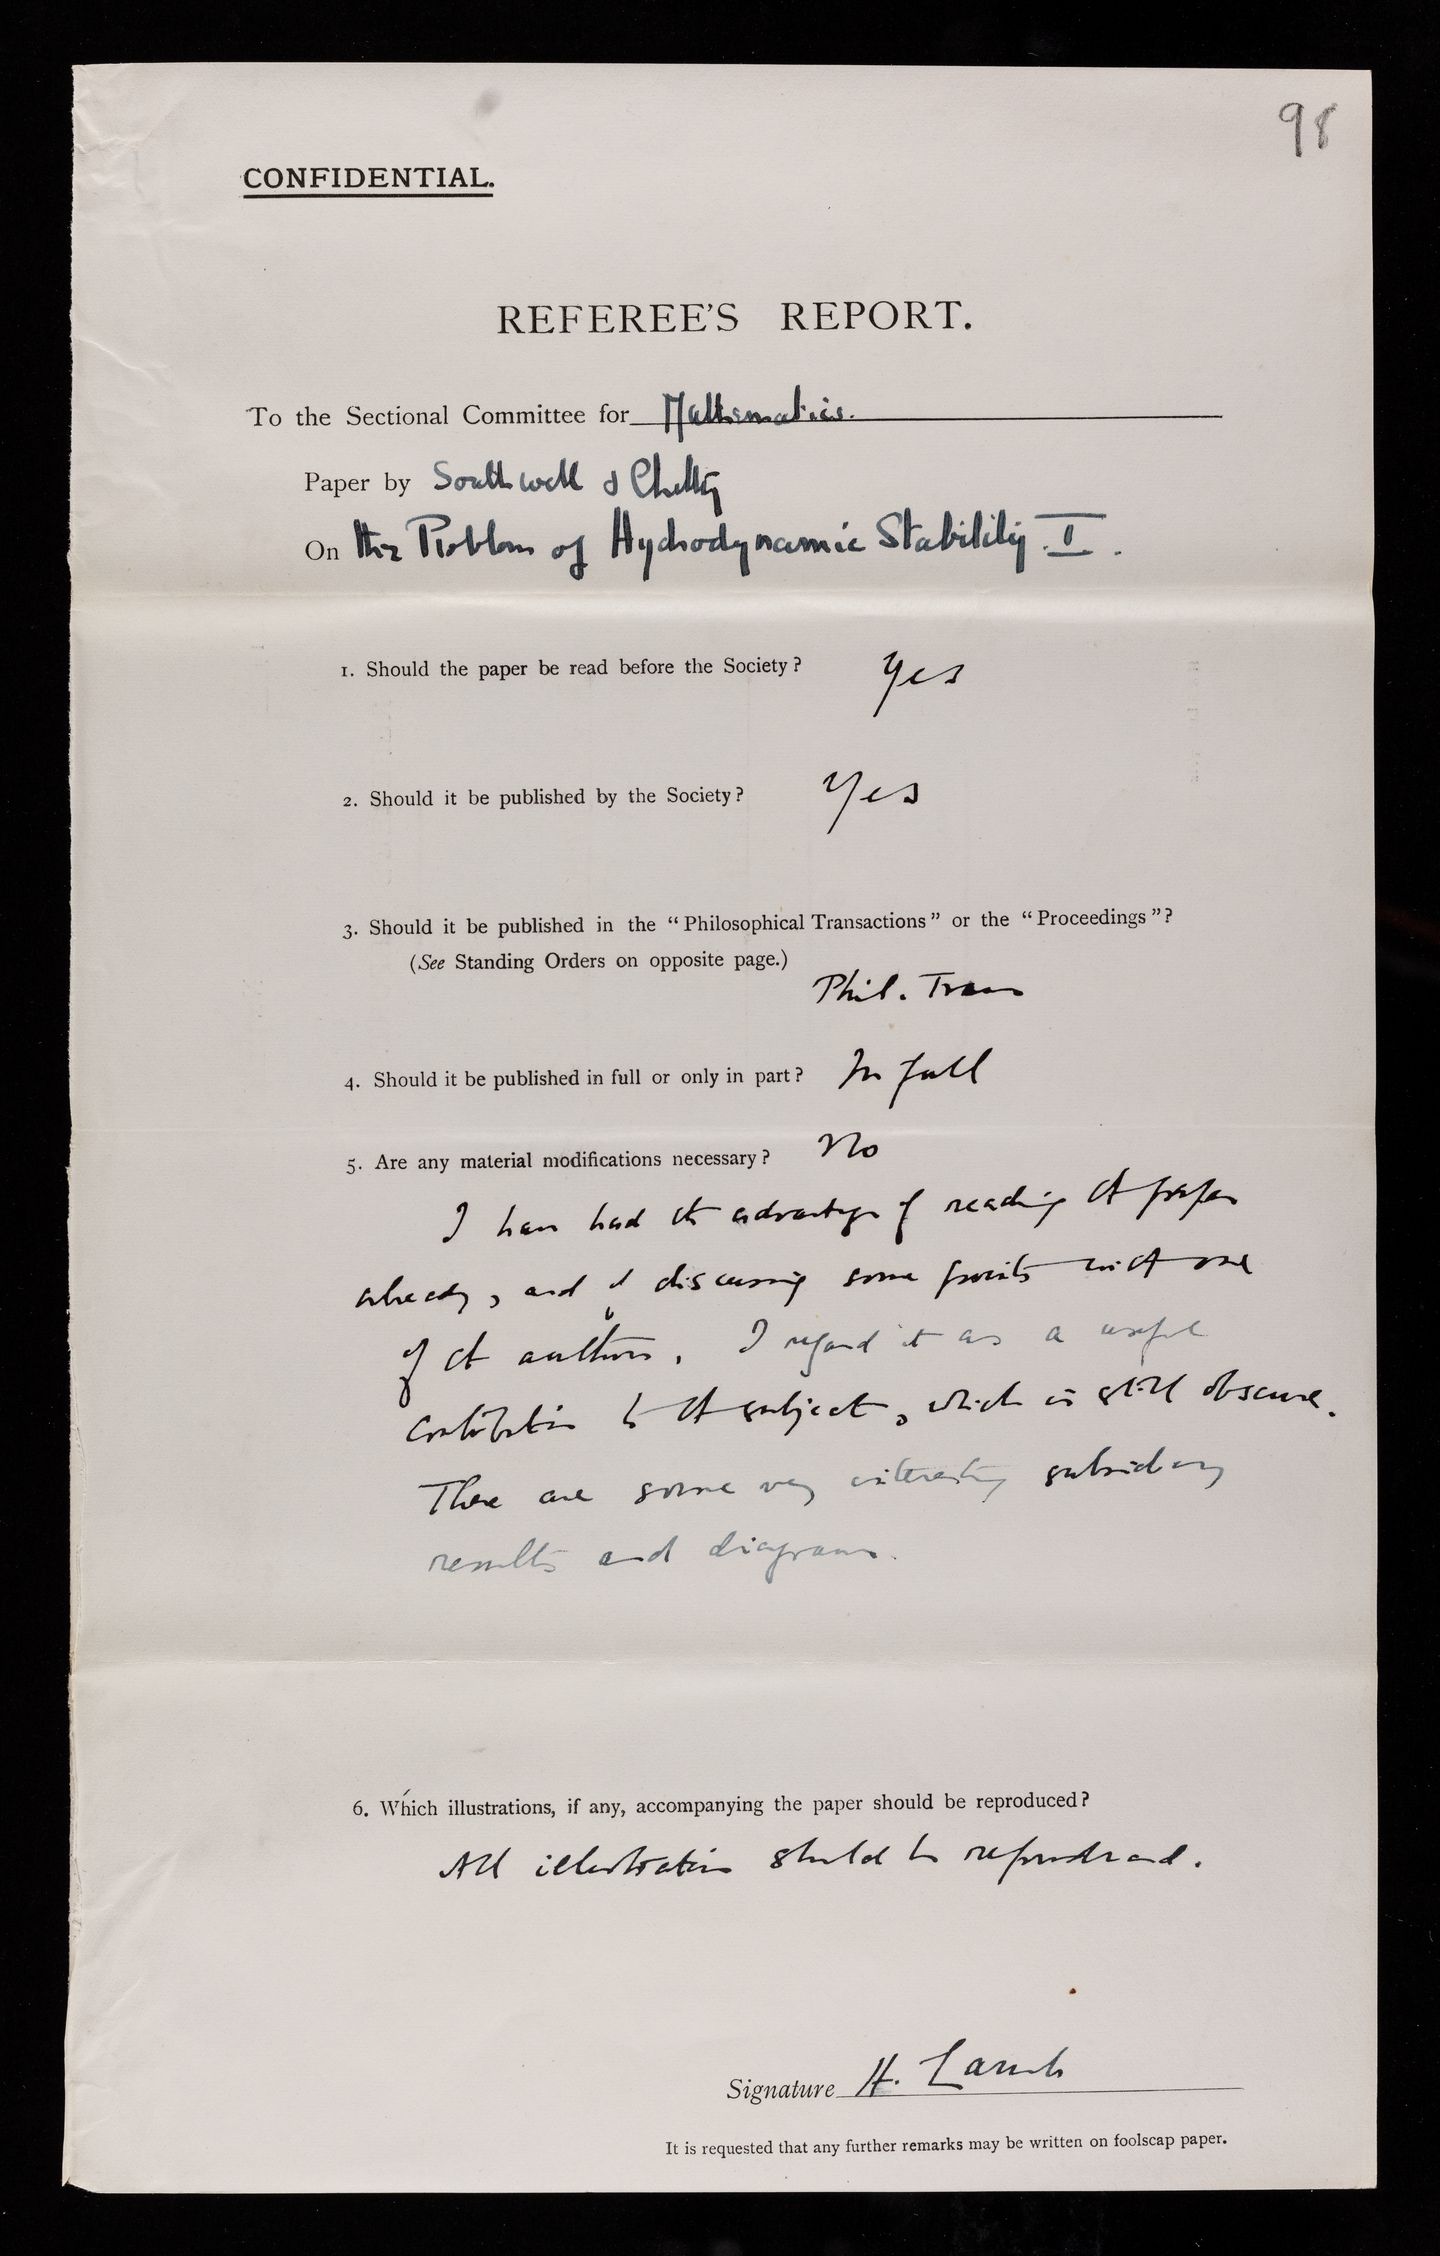 98
CONFIDENTIAL.
REFEREE'S REPORT.
To the Sectional Committee for Mathematics.
Paper by Southwell & Chitty
On the Problem of Hydrodynamic Stability. I.
1. Should the paper be read before the Society? Yes
2. Should it be published by the Society? Yes
3. Should it be published in the "Philosophical Transactions" or the "Proceedings"?
(See Standing Orders on opposite page.)
Phil. Trans
4. Should it be published in full or only in part? In full
5. Are any material modifications necessary? No
I have had the advantage of reading the paper
already, and of discussing some points with one
of the authors. I regard it as a useful
contribution to the subject, which is still obscure.
There are some very interesting subsidiary
results and diagrams.
6. Which illustrations, if any, accompanying the paper should be reproduced?
All illustrations should be reproduced.
Signature H. Lamb
It is requested that any further remarks may be written on foolscap paper.